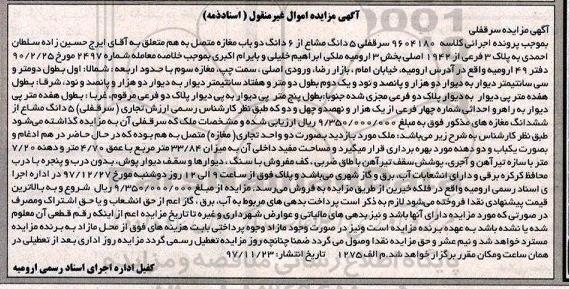 آگهی مزایده اموال غیرمنقول ( اسنادذمه)
آگهی مزایده سرقفلی
بموجب پرونده اجرائی کلاسه ۹۶۰۴۱۸۰ سرقفلی ۵ دانگ مشاع از ۶ دانگ دو باب مغازه متصل به هم متعلق به آقای ایرج حسین زاده سلطان
احمدی به پلاک ۳ فرعی از ۱۹۴۲ اصلی بخش ۳ ارومیه ملکی ابراهیم خلیلی و بایرام اکبری بموجب خلاصه معامله شماره ۲۴۹۷ مورخ ۹۰/۲/۲۵
دفتر ۴۹ ارومیه واقع در آدرس ارومیه، خیابان امام ، بازار رضا، ورودی اصلی ، سمت چپ، مغازه سوم با حدود اربعه : شمالا: اول بطول دومتر و
سی سانتیمتر دیوار به دیوار دو هزار و پانصد و نود و یک دوم بطول دو متر و هفتاد سانتیمتر دیوار به دیوار دو هزار و پانصد و نود، شرقا: بطول
هفده متر پی دیوار به دیوار پلاک دو فرعی مجزی شده جنوبا: بطول پنج متر پی دیوار به پی دیوار پلاک دو فرعی مرقوم، غربا : بطول هفده متر پی
دیوار به راهرو احداثی شماره چهار فرعی از یک هزار و نهصد و چهل و دو که طبق نظر کارشناس رسمی ارزش تجاری (سرقفلی) ۵ دانگ مشاع از
ششدانگ مغازه های مذکور فوق به مبلغ ۹/۳۵۰/۰۰۰/۰۰۰ ریال ارزیابی شده و مشخصات ملک که سرقفلی آن به مزایده گذاشته می‌شود
طبق نظر کارشناس به شرح زیر می‌باشد: ملک مورد بازدید بصورت دو واحد تجاری( مغازه) متصل به هم بوده که در حال حاضر در هم ادغام و
بصورت یکباب و دو دهنه مورد بهره برداری قرار میگیرد و مساحت مفید داخلی آن به میزان ۳۳/۸۴ متر مربع با عمق ۴/۷۰ متر و دهنه ۷/۲۰
متر با سازه تیر آهن و آجری، پوشش سقف تیر آهن با طاق ضربی ، کف مفروش با سنگ ، دیوارها و سقف دیوار پوش، بدون درب و پنجره با درب
محافظ کرکره برقی و دارای انشعابات آب، برق و گاز شهری می‌باشد و پلاک فوق از ساعت ۹ الی ۱۲ روز دوشنبه مورخ ۹۷/۱۲/۲۷ در اداره اجرا
ی اسناد رسمی ارومیه واقع در فلکه خیرین از طریق مزایده به فروش می‌رسد. مزایده از مبلغ ۹/۳۵۰/۰۰۰/۰۰۰ ریال شروع و به بالاترین
قیمت پیشنهادی نقدا فروخته می‌شود لازم به ذکر است پرداخت بدهی های مربوط به آب، برق ، گاز اعم از حق انشعاب و یا حق اشتراک ومصرف
در صورتی که مورد مزایده دارای آنها باشد و نیز بدهی های مالیاتی و عوارض شهرداری و غیره تا تاریخ مزایده اعم از اینکه رقم قطعی آن معلوم
شده یا نشده باشد به عهده برنده مزایده است ونیز در صورت وجود مازاد وجوه پرداختی بابت هزینه های فوق از محل مازاد به برنده مزایده
مسترد خواهد شد و نیم عشر و حق مزایده نقدا وصول می گردد ضمنا چنانچه روز مزایده تعطیل رسمی گردد مزایده روز اداری بعد از تعطیلی در
همان ساعت ومکان مقرر برگزار خواهد شد.م الف ۱۲۷۵ تاریخ انتشار: ۹۷/۱۱/۲۳
کفیل اداره اجرای اسناد رسمی ارومیه